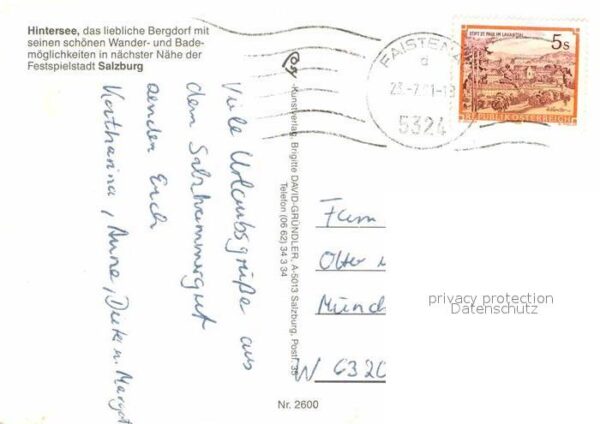 Hintersee, das liebliche Bergdorf mit
seinen schönen Wander- und Bade-
möglichkeiten in nächster Nähe der
Festspielstadt Salzburg
Viele Urlaubsgrüße aus
dem Salzkammergut
senden Euch
Katharina, Anne, Dieter u. Margot
Kunstverlag Brigitte DAVID-GRÜNDLER, A-5013 Salzburg, Postf. 35
Telefon (06 62) 34 3 34
FAISTENA
d
23.-7.
5324
STIFT ST. PAUL IM LAVANTTAL
5s
REPUBLIK ÖSTERREICH
Fam
Otto
Münch
W 6320
privacy protection
Datenschutz
Nr. 2600